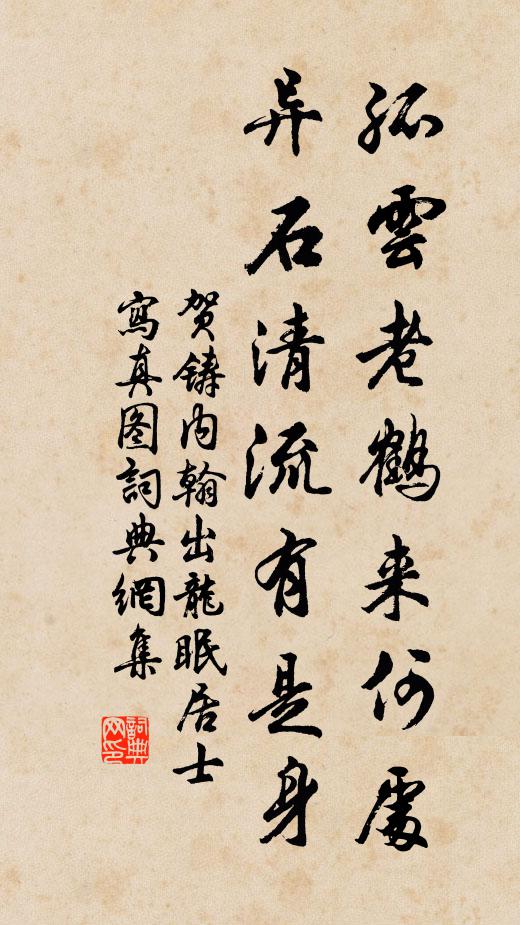 孤雲老鶴来何處
异石清流有是身
贺鑄内翰出龍眠居士
寫真图詞典網集
詞典网印